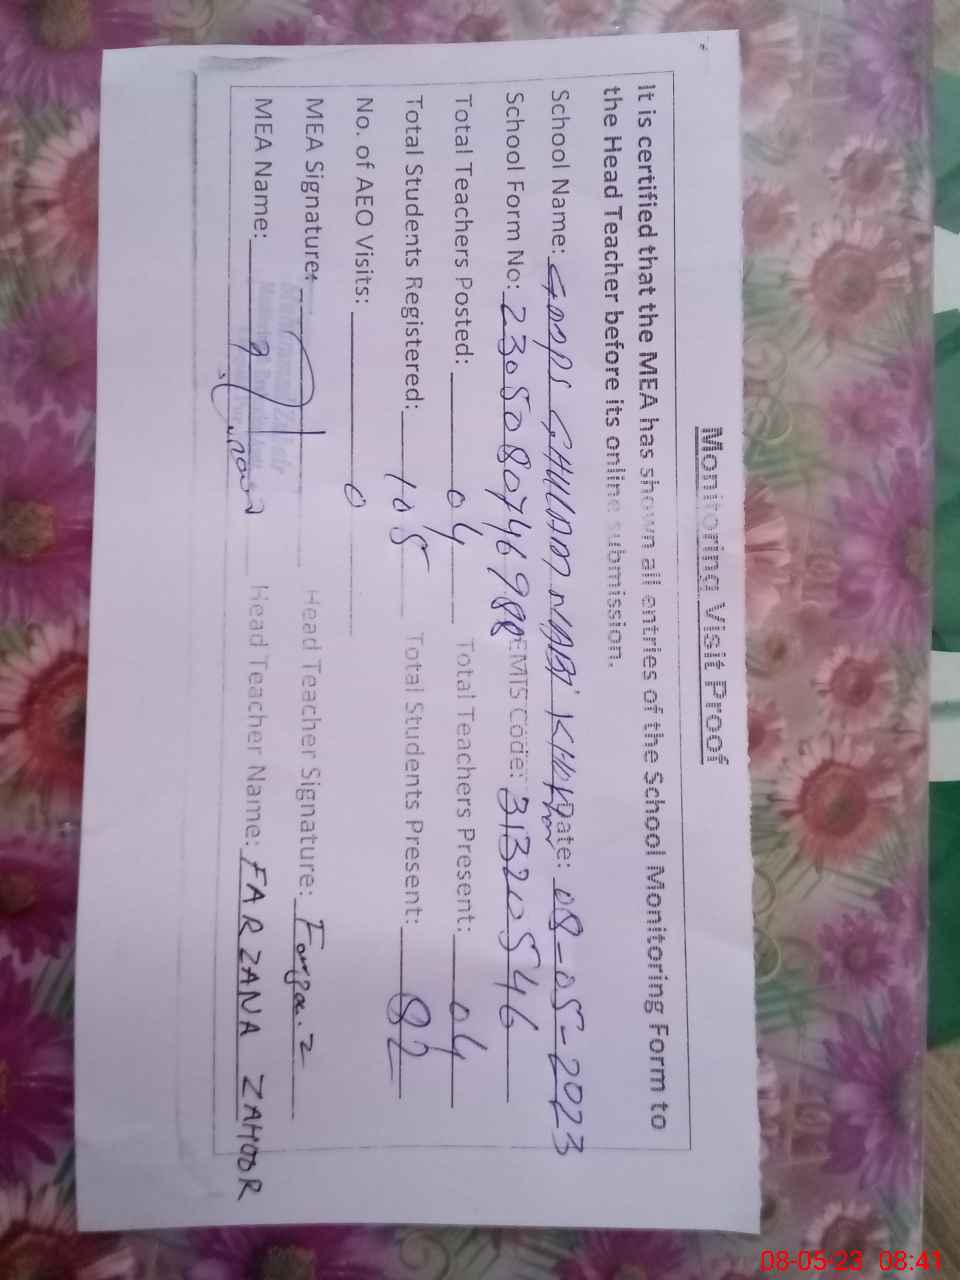 Monitoring Visit Proof
It is certified that the MEA has shown all entries of the School Monitoring Form to
the Head Teacher before its online submission.
School Name: GMPS GHULAM NABI Date: 08-05-2023
School Form No: 2305080746988 EMIS Code: 31320546
Total Teachers Posted: 04 Total Teachers Present: 04
Total Students Registered: 105 Total Students Present: 82
No. of AEO Visits: 0
MEA Signature: Head Teacher Signature:
MEA Name: Head Teacher Name: FARZANA ZAHOOR
08-05-23 08:41